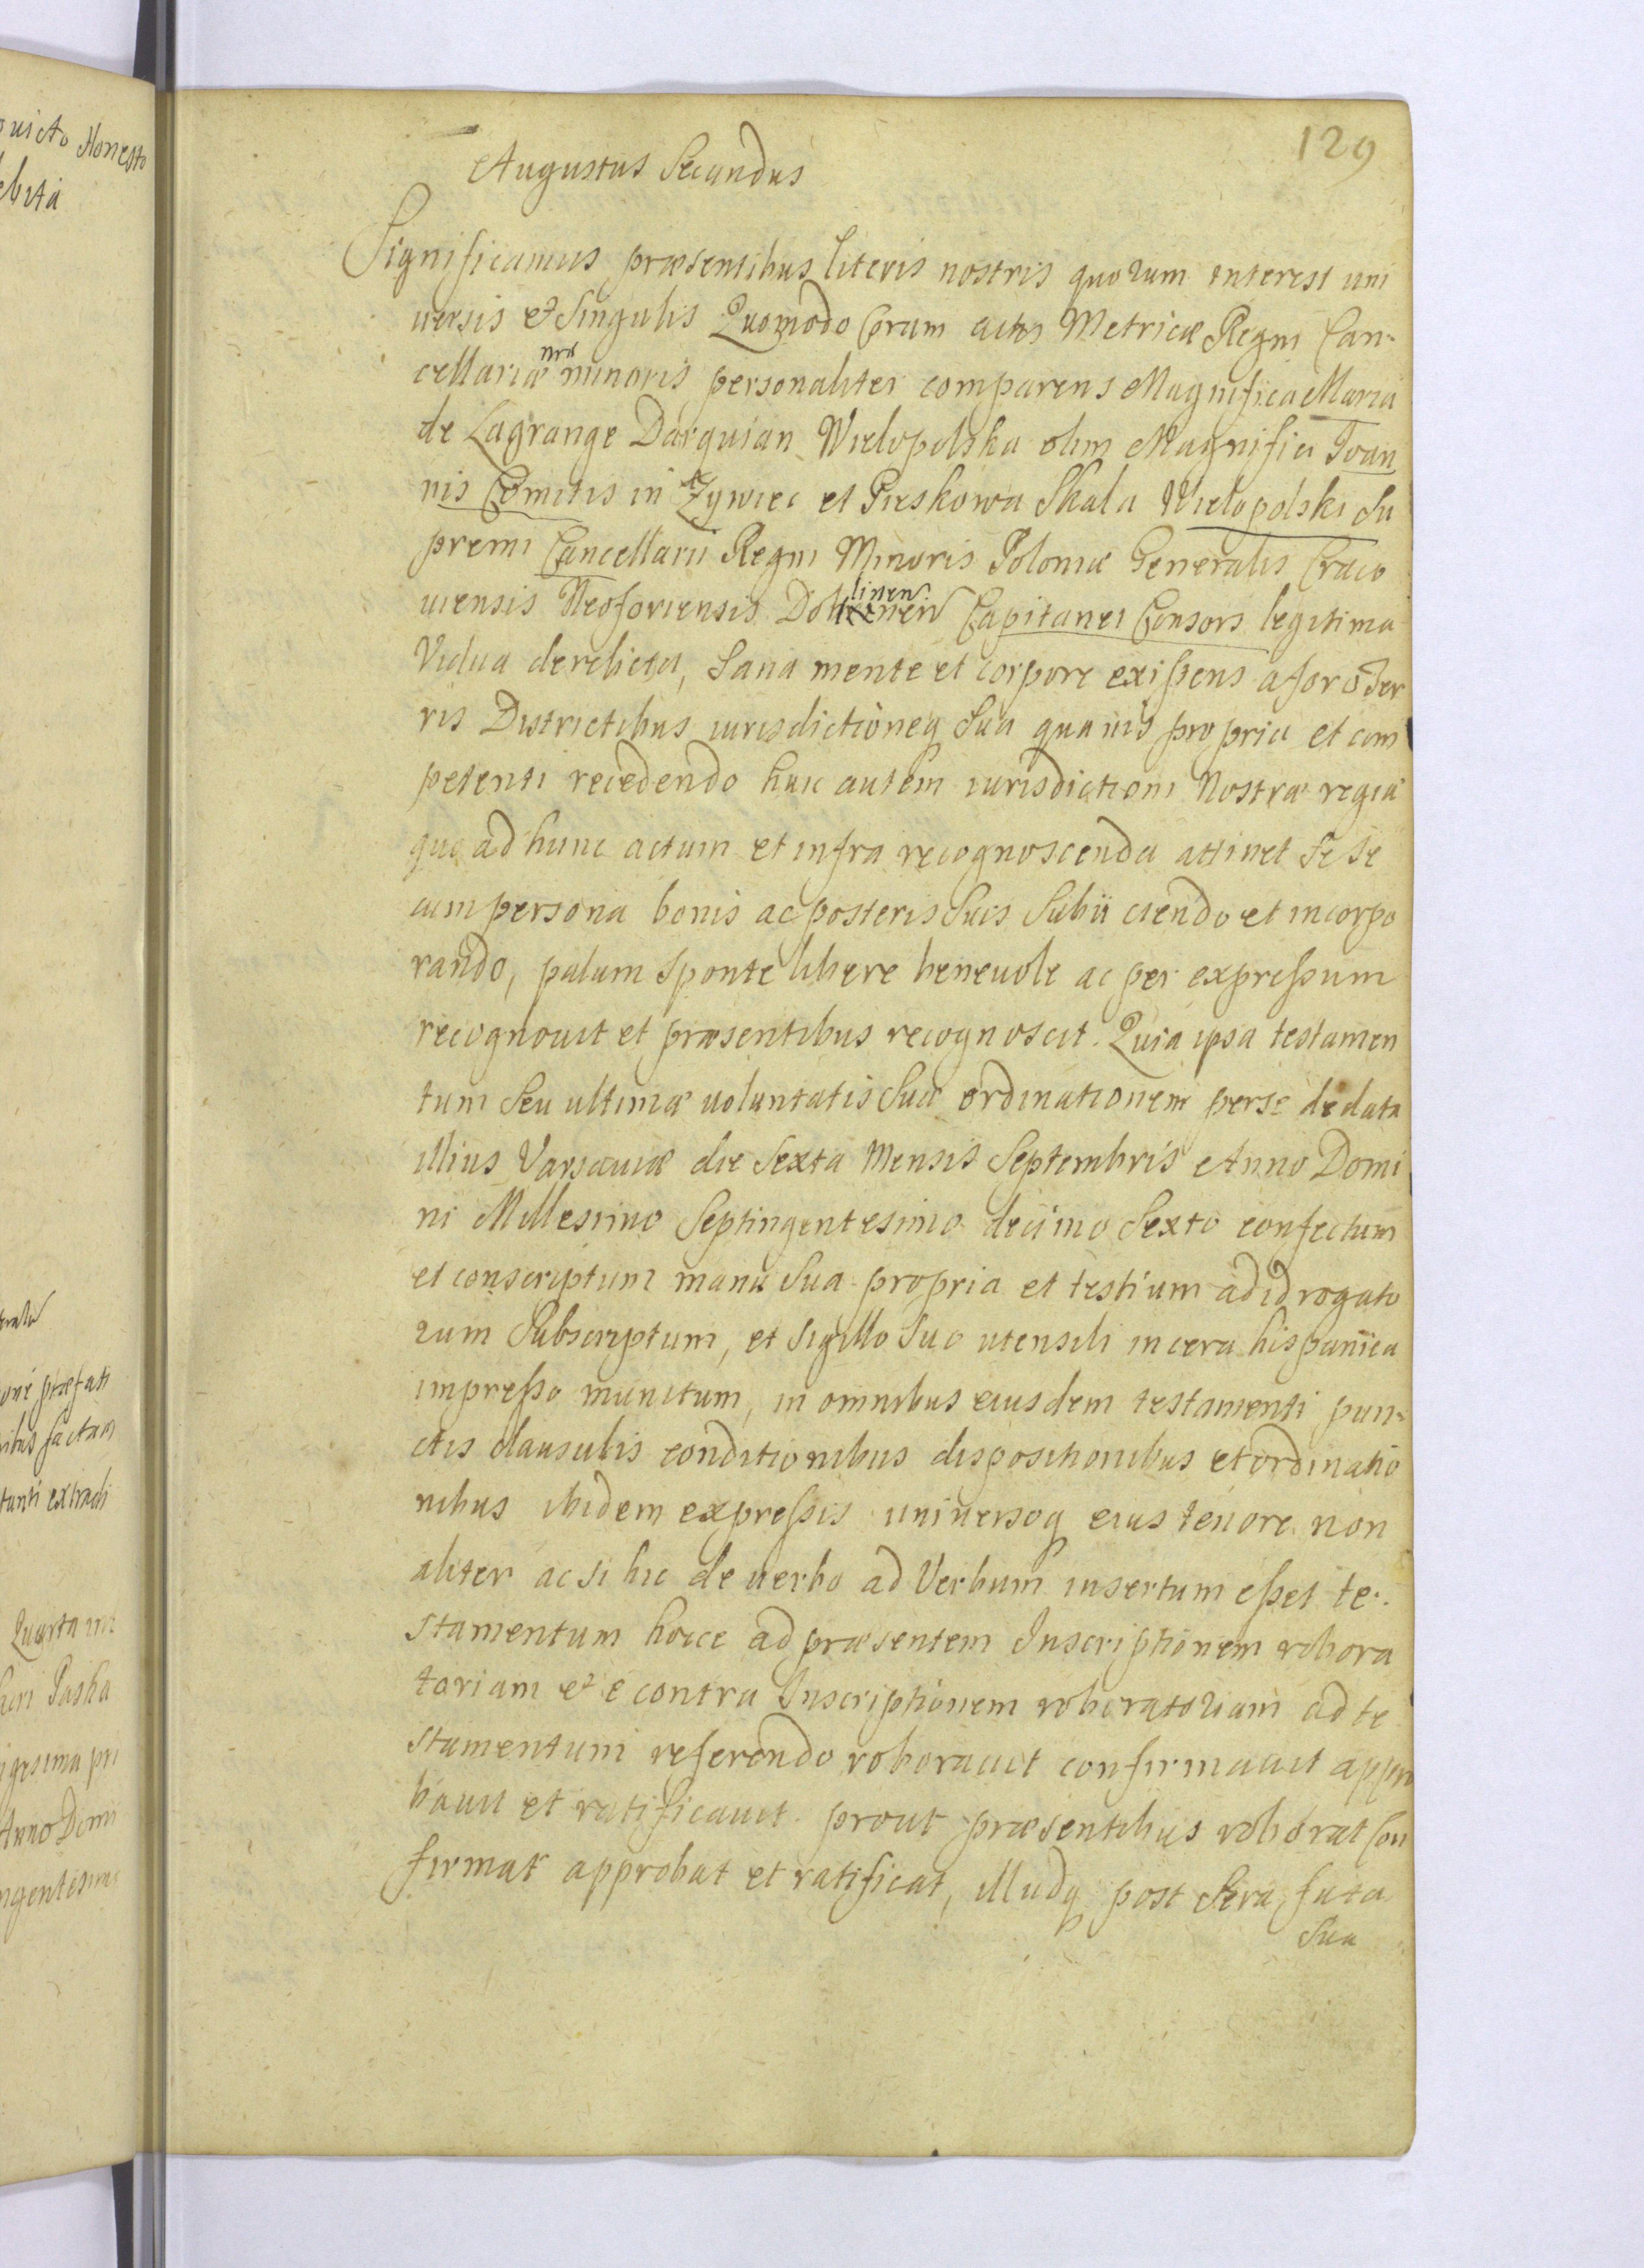 129
Augustus Secundus
Significamus præsentibus literis nostris quorum interest uni
uersis et Singulis Quomodo Coram actis Metricæ Regni Can-
cellariæ nræ minoris personaliter comparens Magnifica Maria
de Lagrange Darquian Wielopolska olim Magnifici Ioan
nis Comitis in Zywiec et Pieskowa Skala Wielopolski Su
premi Cancellarii Regni Minoris Poloniæ Generalis Craco
uiensis Neoforiensis Capitanei Consors legitima
linen
Vidua derelicta, Sana mente et corpore existens a foro Ter
ris Districtibus iurisdictioneq sua quauis propria et com
petenti recedendo huic autem iurisdictioni Nostræ regiæ
quo ad hunc actum et infra recognoscenda attinet Se se
cum persona bonis ac posteris Suis Subiiciendo et incorpo
rando, palam sponte libere beneuole ac per expressum
recognouit et præsentibus recognoscit. Quia ipsa testamen
tum Seu ultimæ uoluntatis Suæ ordinationem per se de data
illius Varsauiæ die Sexta Mensis Septembris Anno Domi
ni Millesimo Septingentesimo decimo Sexto confectum
et conscriptum manu Sua propria et testium ad id rogato
rum Subscriptum, et Sigillo Suo utensili in cera hispanica
impresso munitum, in omnibus eiusdem testamenti pun-
ctis clausulis conditionibus dispositionibus et ordinatio
nibus ibidem expressis uniuersoq eius tenore non
aliter ac si hic de uerbo ad Verbum insertum esset te-
stamentum hocce ad præsentem Inscriptionem robora
toriam et e contra Inscriptionem roboratoriam ad te
stamentum referendo roborauit confirmauit appro
bauit et ratificauit prout præsentibus roborat con
firmat approbat et ratificat, illudq post Sera fata
Sua
uicto Honesto
ebita
præfati
factam
extradi
Quarta
Paska
gesima pri
Anno Domi